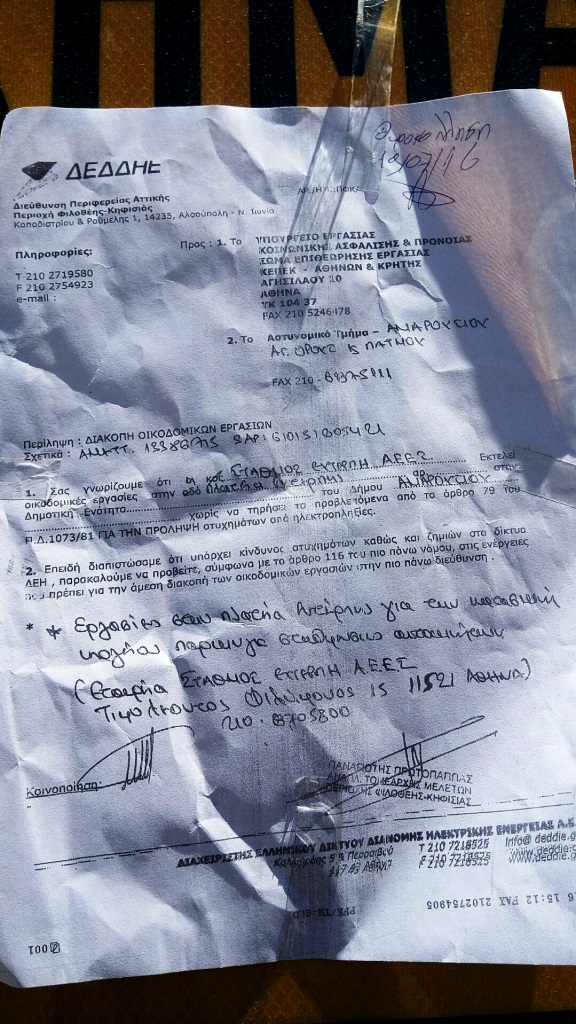 ΔΕΔΔΗΕ
18/07/16
Διεύθυνση Περιφερείας Αττικής
Περιοχή Φιλοθέης-Κηφισιάς
Καποδιστρίου & Ρούμελης 1, 14235, Αλσούπολη - Ν. Ιωνία
Πληροφορίες:
Τ 210 2719580
F 210 2754923
e-mail :
Προς : 1. Το ΥΠΟΥΡΓΕΙΟ ΕΡΓΑΣΙΑΣ
ΚΟΙΝΩΝΙΚΗΣ ΑΣΦΑΛΙΣΗΣ & ΠΡΟΝΟΙΑΣ
ΣΩΜΑ ΕΠΙΘΕΩΡΗΣΗΣ ΕΡΓΑΣΙΑΣ
ΚΕΠΕΚ - ΑΘΗΝΩΝ & ΚΡΗΤΗΣ
ΑΓΗΣΙΛΑΟΥ 10
ΑΘΗΝΑ
ΤΚ 104 37
FAX 210 5246478
2. Το Αστυνομικό Τμήμα - ΑΜΑΡΟΥΣΙΟΥ
ΑΓ. ΟΡΟΥΣ & ΠΑΤΜΟΥ
FAX 210 -
Περίληψη : ΔΙΑΚΟΠΗ ΟΙΚΟΔΟΜΙΚΩΝ ΕΡΓΑΣΙΩΝ
Σχετικά :
1. Σας γνωρίζουμε ότι η κος ΣΤΑΘΜΟΣ ΕΥΤΕΡΠΗ Α.Ε.Ε.Σ Εκτελεί
οικοδομικές εργασίες στην οδό του Δήμου ΑΜΑΡΟΥΣΙΟΥ στην
Δημοτική Ενότητα χωρίς να τηρήσει τα προβλεπόμενα από το άρθρο 79 του
Π.Δ.1073/81 ΓΙΑ ΤΗΝ ΠΡΟΛΗΨΗ ατυχημάτων από ηλεκτροπληξίες.
2. Επειδή διαπιστώσαμε ότι υπάρχει κίνδυνος ατυχημάτων καθώς και ζημιών στα δίκτυα
ΔΕΗ , παρακαλούμε να προβείτε, σύμφωνα με το άρθρο 116 του πιο πάνω νόμου, στις ενέργειες
που πρέπει για την άμεση διακοπή των οικοδομικών εργασιών στην πιο πάνω διεύθυνση .
* * Εργασίες στην πλατεία για την κατασκευή
υπογείου στάθμευσης αυτοκινήτων
(Εταιρία ΣΤΑΘΜΟΣ ΕΥΤΕΡΠΗ Α.Ε.Ε.Σ
Τιμολέοντος Φιλήμονος 15 11521 ΑΘΗΝΑ)
210.8705800
Κοινοποίηση:
ΠΑΝΑΓΙΩΤΗΣ ΠΡΩΤΟΠΑΠΠΑΣ
ΑΝΑΠΛ. ΤΟΜΕΑΡΧΗΣ ΜΕΛΕΤΩΝ
ΠΕΡΙΟΧΗΣ ΦΙΛΟΘΕΗΣ-ΚΗΦΙΣΙΑΣ
ΔΙΑΧΕΙΡΙΣΤΗΣ ΕΛΛΗΝΙΚΟΥ ΔΙΚΤΥΟΥ ΔΙΑΝΟΜΗΣ ΗΛΕΚΤΡΙΚΗΣ ΕΝΕΡΓΕΙΑΣ Α.Ε.
& Περραιβού Τ 210 7218525 Info@ deddie.g
117 43 Αθήνα F 210 7218525 www.deddie.g
6 15:12 FAX 2102754905
001